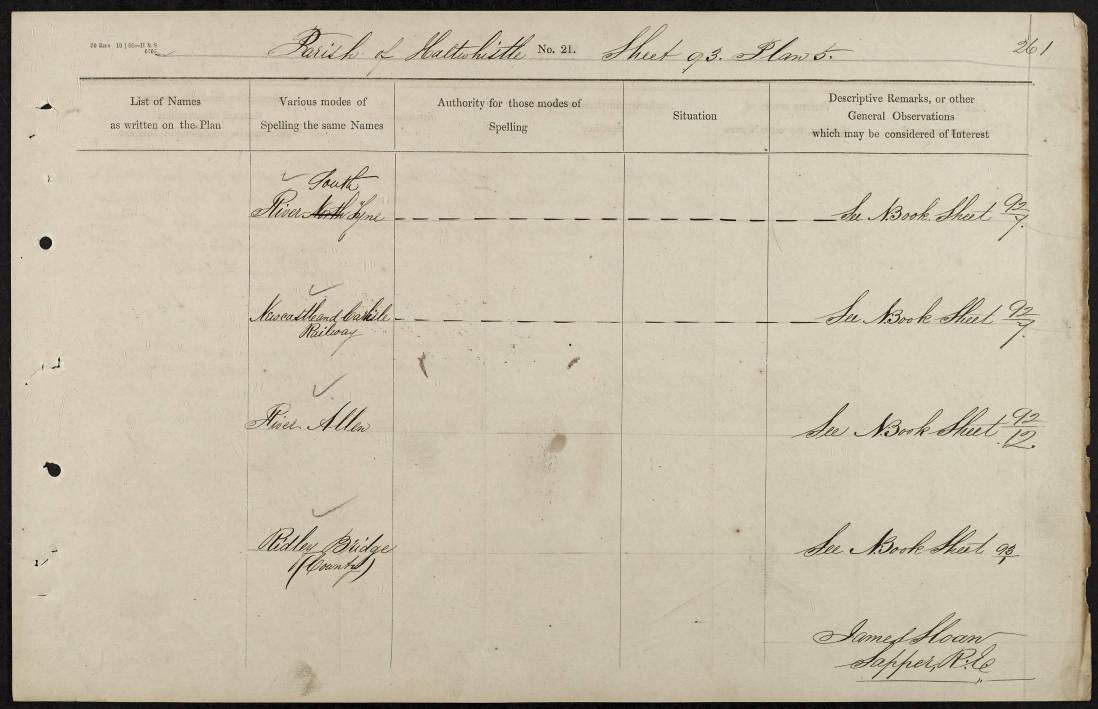 Parish of Haltwhistle No. 21. Sheet 93. Plan 5. 261
List of Names
as written on the Plan
Various modes of
Spelling the same Names
Authority for those modes of
Spelling
Situation
Descriptive Remarks, or other
General Observations
which may be considered of Interest
South
River North Tyne
See N.Book Sheet 92/7.
Newcastle and Carlisle
Railway
See N.Book Sheet 92/7.
River Allen
See N.Book Sheet 92/12.
Ridley Bridge
(County)
See N.Book Sheet 93/1
James Sloan
Sapper, R.E.